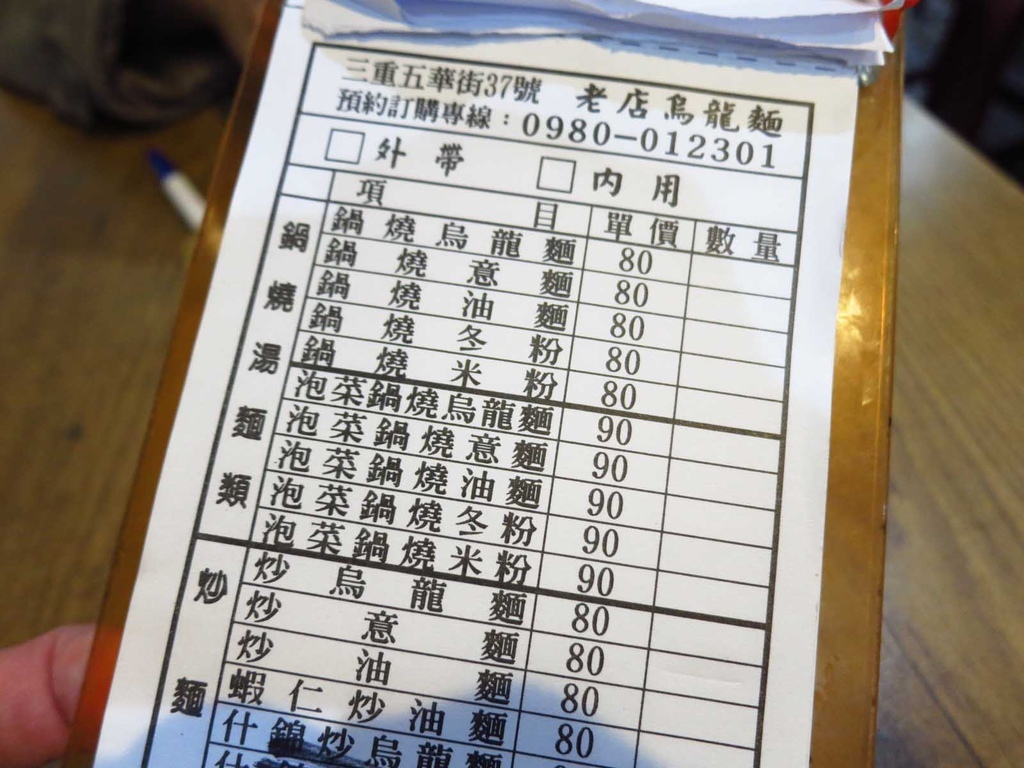 三重五華街37號 老店烏龍麵
預約訂購專線：0980-012301
□外帶 □內用
項目 單價 數量
鍋燒湯麵類
鍋燒烏龍麵 80
鍋燒意麵 80
鍋燒油麵 80
鍋燒冬粉 80
鍋燒米粉 80
泡菜鍋燒烏龍麵 90
泡菜鍋燒意麵 90
泡菜鍋燒油麵 90
泡菜鍋燒冬粉 90
泡菜鍋燒米粉 90
炒麵
炒烏龍麵 80
炒意麵 80
炒油麵 80
蝦仁炒油麵 80
什錦炒烏龍麵